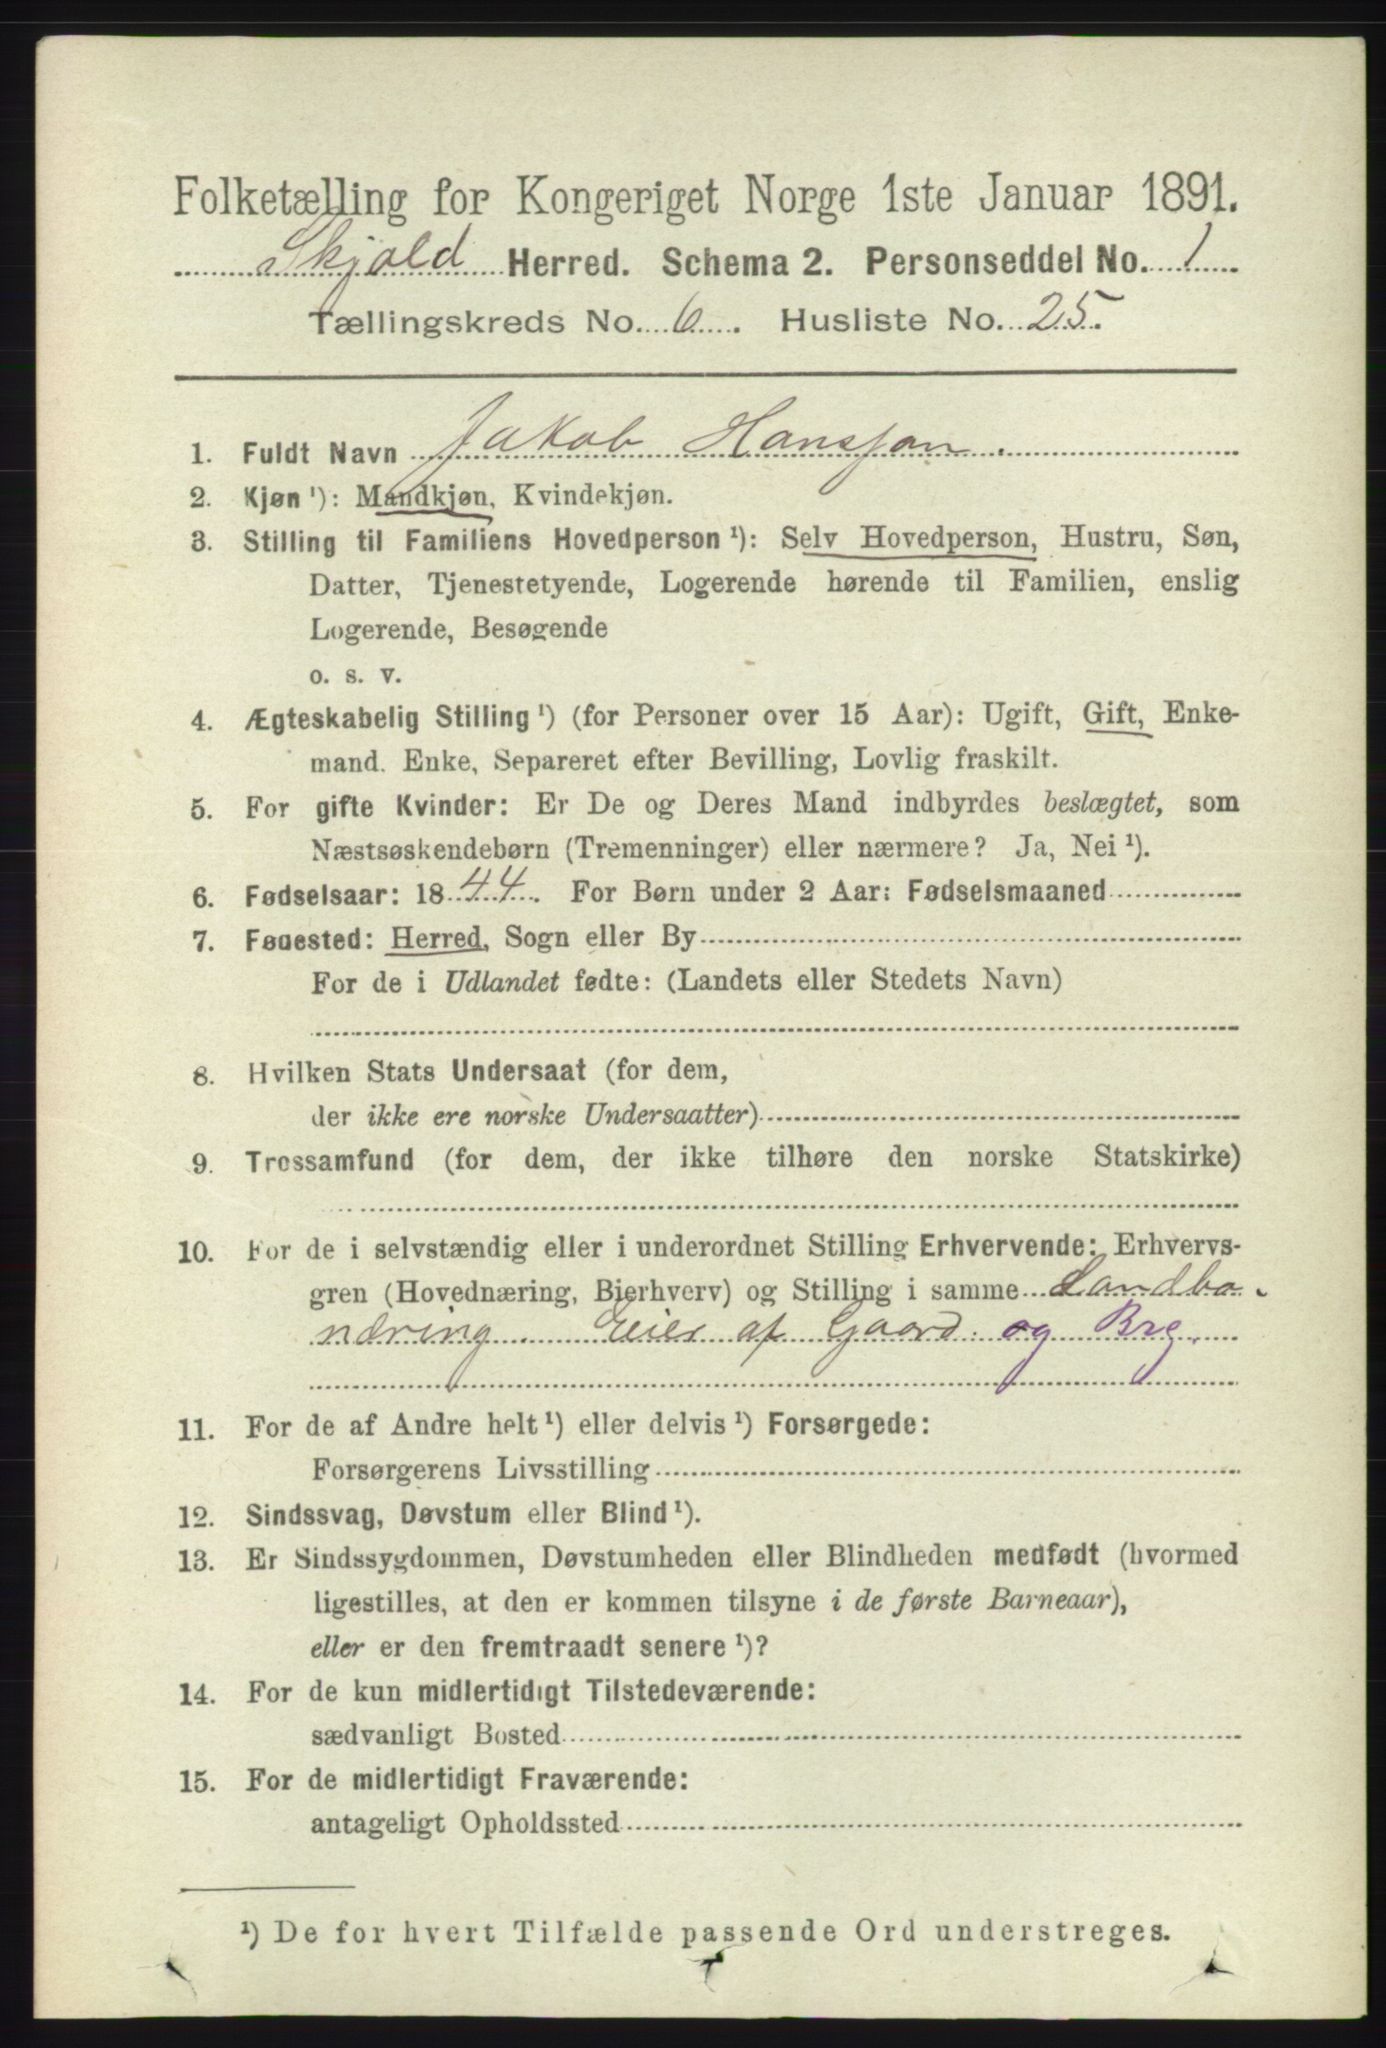 Folketælling for Kongeriget Norge 1ste Januar 1891.
Skjold Herred. Schema 2. Personseddel No. 1
Tællingskreds No. 6. Husliste No. 25.
1. Fuldt Navn Jakob Hansson.
2. Kjøn¹): Mandkjøn, Kvindekjøn.
3. Stilling til Familiens Hovedperson¹): Selv Hovedperson, Hustru, Søn,
Datter, Tjenestetyende, Logerende hørende til Familien, enslig
Logerende, Besøgende
o. s. v.
4. Ægteskabelig Stilling¹) (for Personer over 15 Aar): Ugift, Gift, Enke-
mand. Enke, Separeret efter Bevilling, Lovlig fraskilt.
5. For gifte Kvinder: Er De og Deres Mand indbyrdes beslægtet, som
Næstsøskendebørn (Tremenninger) eller nærmere? Ja, Nei¹).
6. Fødselsaar: 1844. For Børn under 2 Aar: Fødselsmaaned
7. Føuested: Herred, Sogn eller By
For de i Udlandet fødte: (Landets eller Stedets Navn)
8. Hvilken Stats Undersaat (for dem,
der ikke ere norske Undersaatter)
9. Trossamfund (for dem, der ikke tilhøre den norske Statskirke)
10. For de i selvstændig eller i underordnet Stilling Erhvervende: Erhvervs-
gren (Hovednæring, Bierhverv) og Stilling i samme Landbo-
næring. Eier af Gaard. og Brg.
11. For de af Andre helt¹) eller delvis¹) Forsørgede:
Forsørgerens Livsstilling
12. Sindssvag, Døvstum eller Blind¹).
13. Er Sindssygdommen, Døvstumheden eller Blindheden medfødt (hvormed
ligestilles, at den er kommen tilsyne i de første Barneaar),
eller er den fremtraadt senere¹)?
14. For de kun midlertidigt Tilstedeværende:
sædvanligt Bosted
15. For de midlertidigt Fraværende:
antageligt Opholdssted
¹) De for hvert Tilfælde passende Ord understreges.